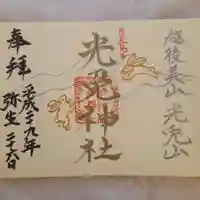 越後奥山 光兎山
光兎神社
奉拝
平成二十九年
弥生二十六日